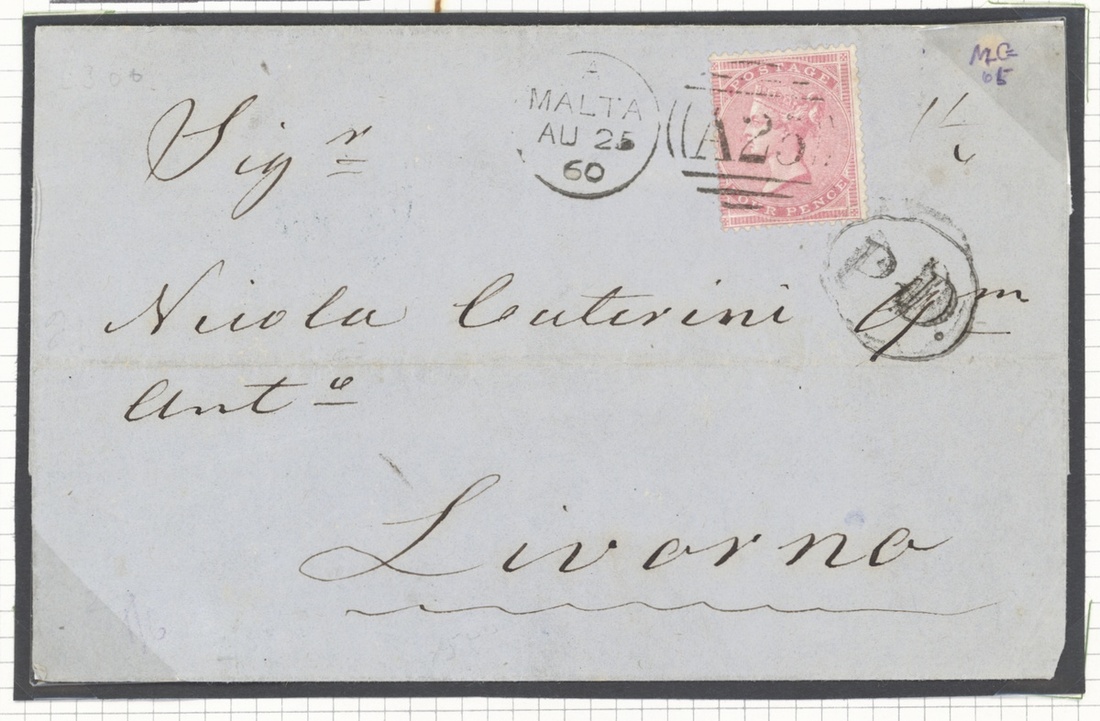 MG
05
A
MALTA
AU 25
60
A25
POSTAGE
FOUR PENCE
Sigr
P.D.
Nicola Caterini qm
Anto
Livorno